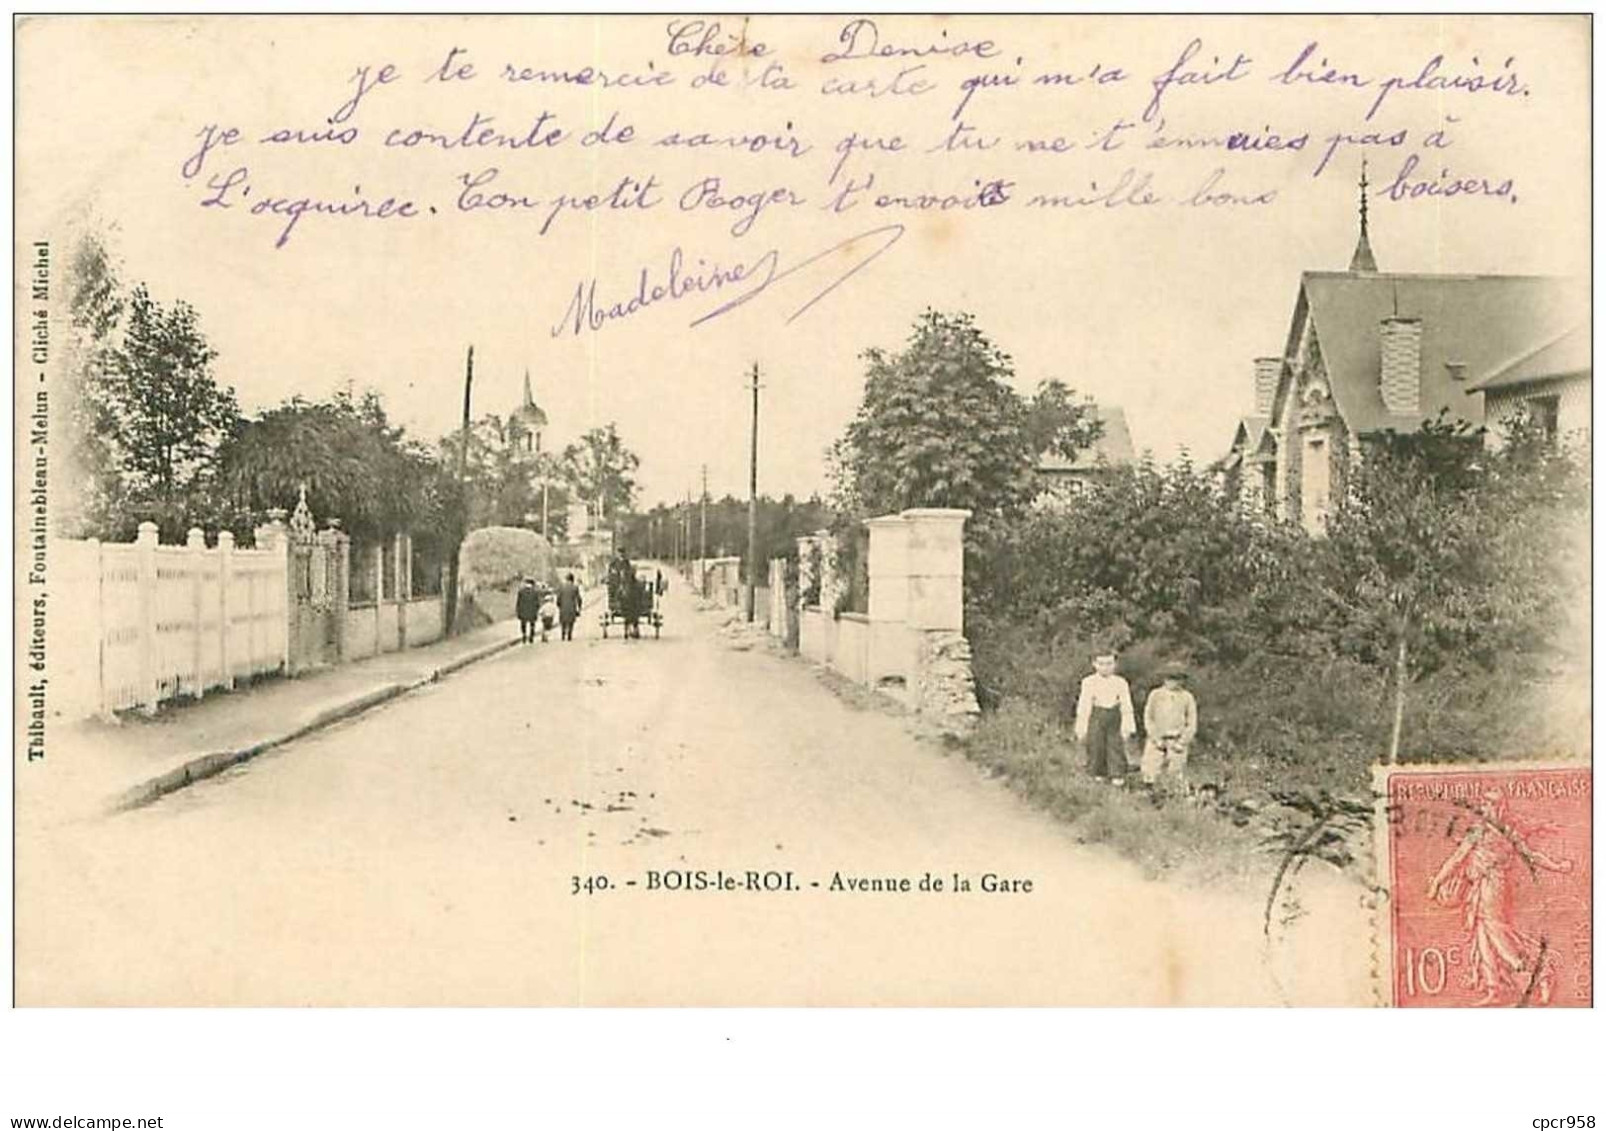 Chère Denise
je te remercie de ta carte qui m'a fait bien plaisir.
je suis contente de savoir que tu ne t'ennuies pas à
L'ocquirec. Ton petit Roger t'envoie mille bons baisers.
Madeleine
Thibault, éditeurs, Fontainebleau-Melun - Cliché Michel
340. - BOIS-le-ROI. - Avenue de la Gare
REPUBLIQUE FRANÇAISE
10c
POSTES
delcampe.net
cpcr958